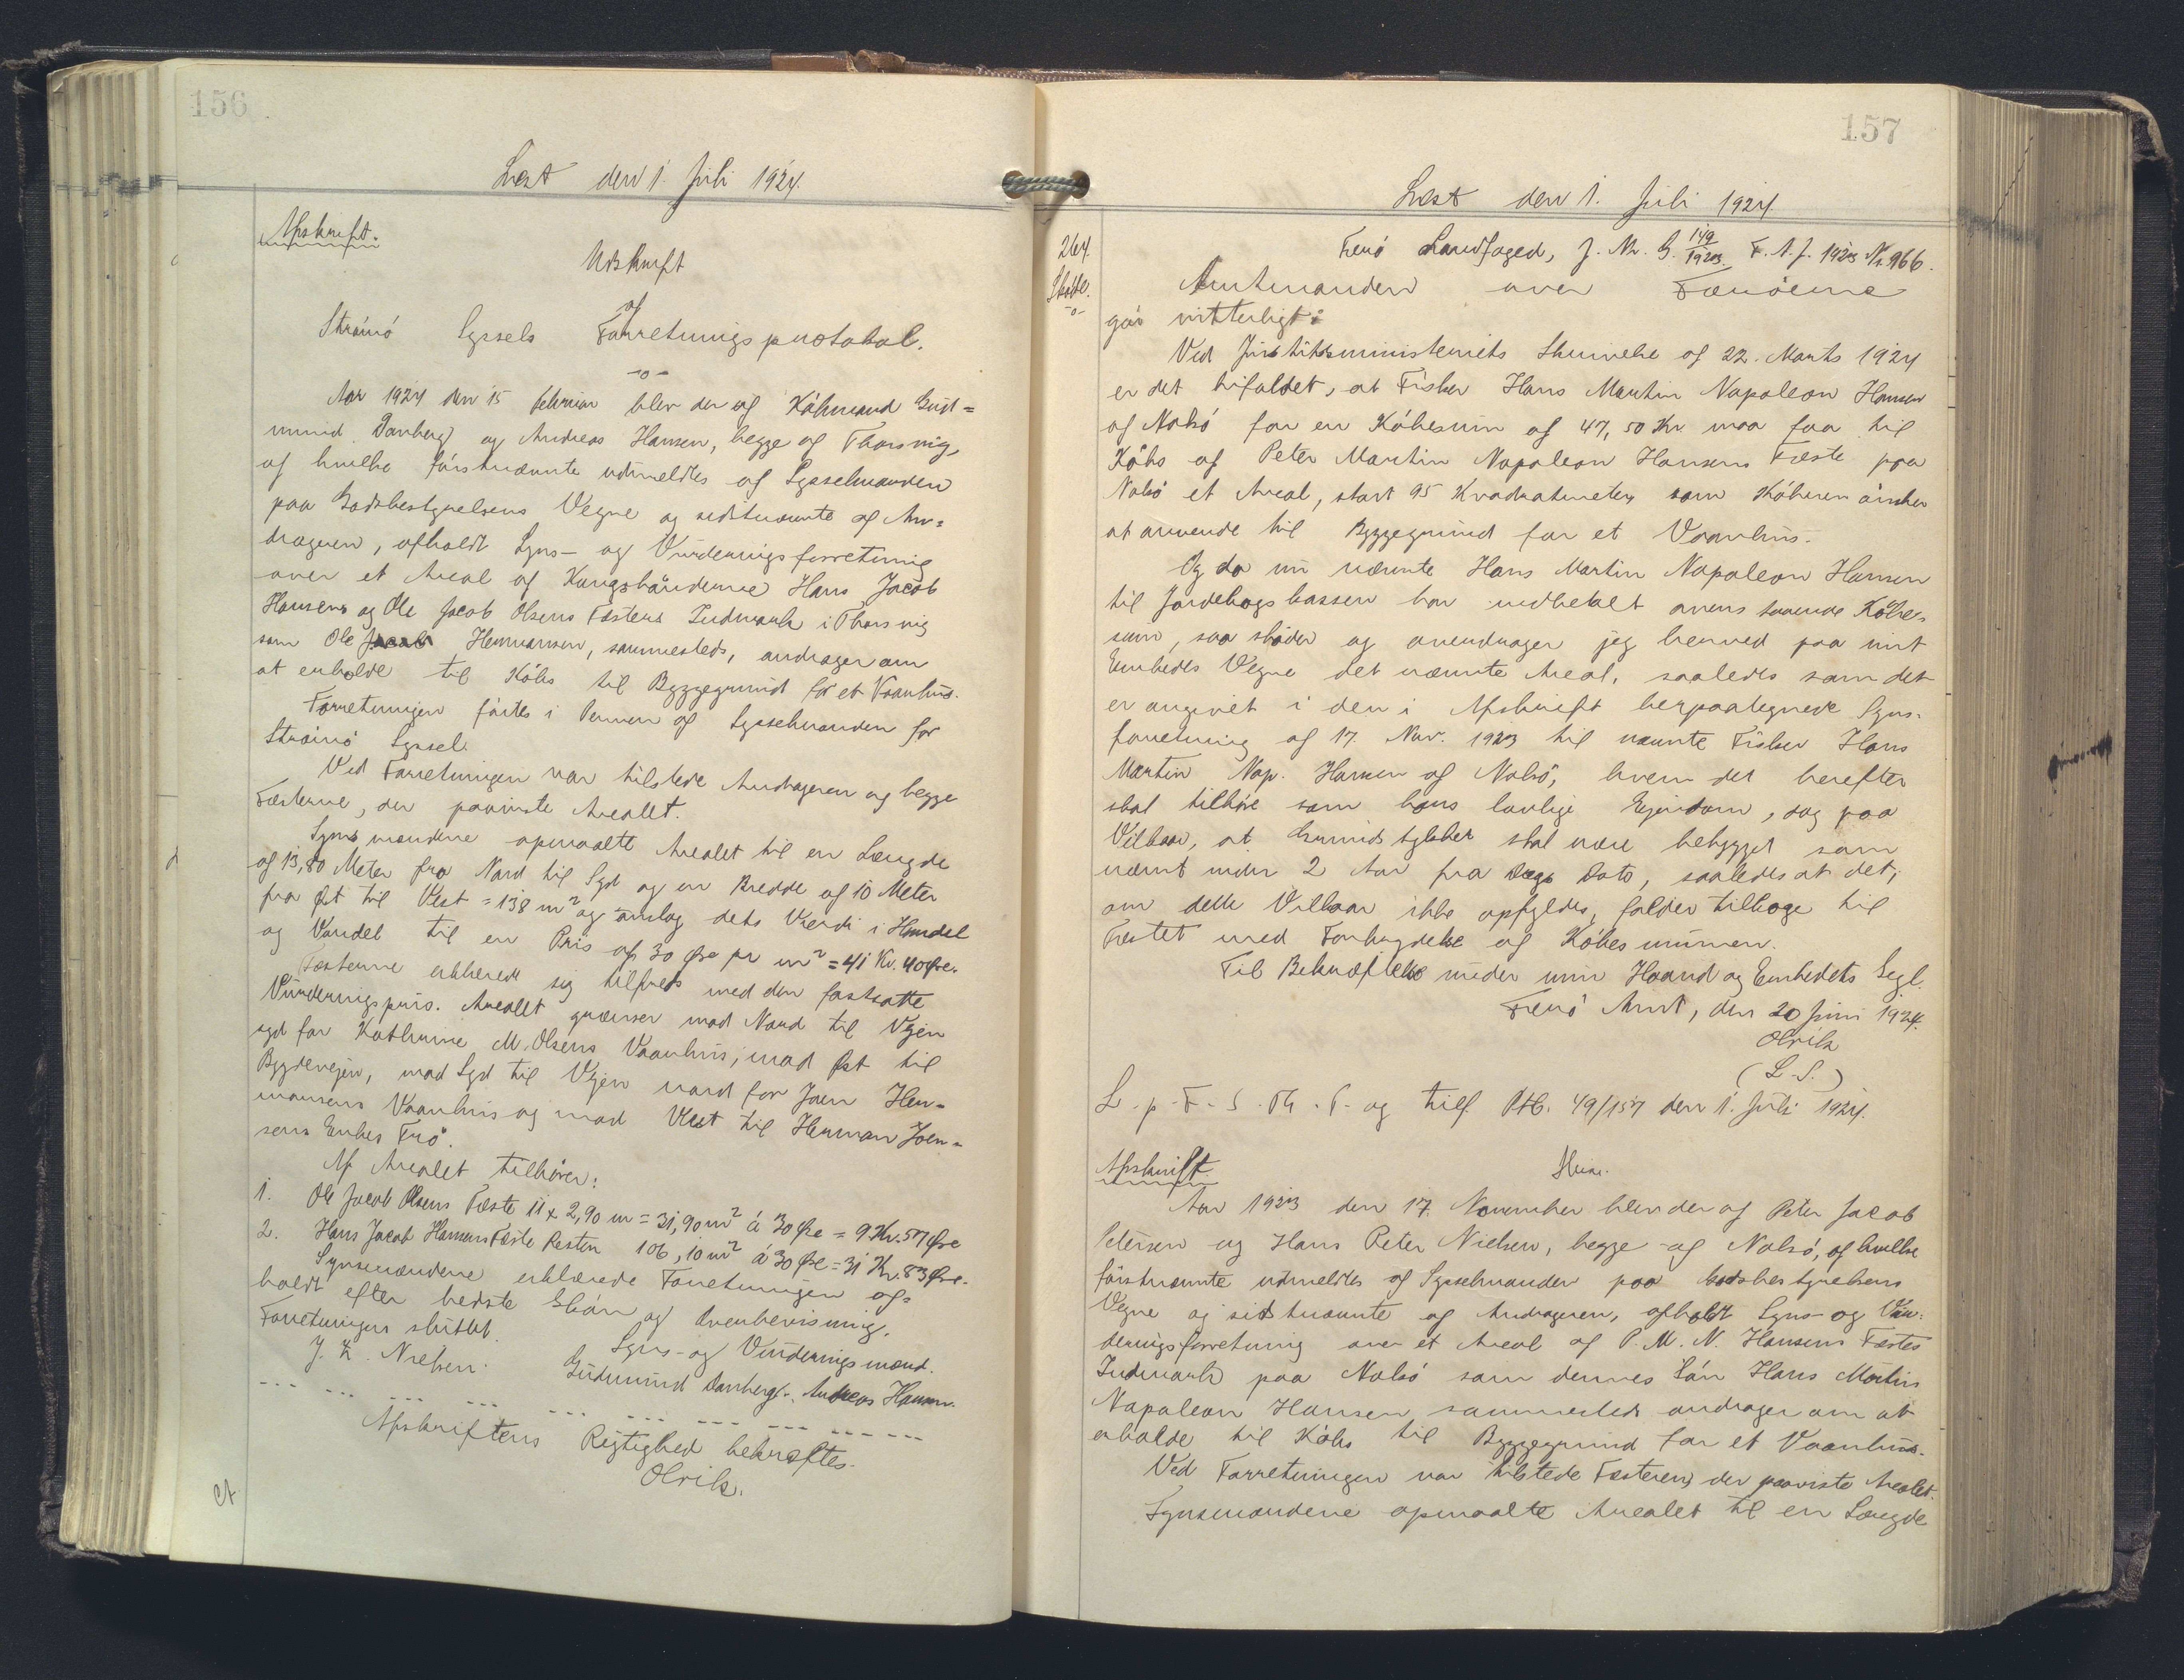 156
Læst den 1. Juli 1924.
Afskrift.
Udskrift
af
Strömö Syssels Forretningsprotokol.
-o-
Aar 1924 den 15 februar blev der af Købmand Gud=
mund Danberg og Andreas Hansen, begge af Thorsvig,
af hvilke förstnævnte udmeldtes af Sysselmanden
paa Godsbestyrelsens Vegne og sidstnævnte af An=
drageren, afholdt Syns- og Vurderingsforretning
over et Areal af Kongsbönderne Hans Jacob
Hansens og Ole Jacob Olsens Fæstes Indmark i Thorsvig
som Ole Jacob Hermansen, sammesteds, andrager om
at erholde til Köbs til Byggegrund for et Vaanhus.
Forretningen förtes i Pennen af Sysselmanden for
Strömö Syssel.
Ved Forretningen var tilstede Andrageren og begge
Fæsterne, der paaviste Arealet.
Synsmændene opmaalte Arealet til en Længde
af 13,80 Meter fra Nord til Syd og en Bredde af 10 Meter
fra Øst til Vest = 138 m² og anslog dets Værdi i Handel
og Vandel til en Pris af 30 Øre pr m² = 41 Kr. 40 Øre.
Fæsterne erklærede sig tilfreds med den fastsatte
Vurderingspris. Arealet grænser mod Nord til Vejen
syd for Kathrine M. Olsens Vaanhus, mod Øst til
Bygdevejen, mod Syd til Vejen nord for Joen Her=
mansens Vaanhus og mod Vest til Herman Joen=
sens Enkes Trö.
Af Arealet tilhører:
1. Ole Jacob Olsens Fæste 11 x 2,90 m = 31,90 m² á 30 Øre = 9 Kr. 57 Øre
2. Hans Jacob Hansens Fæste Resten 106,10 m² á 30 Øre = 31 Kr. 83 Øre.
Synsmændene erklærede Forretningen af=
holdt efter bedste Skön og Overbevisning.
Forretningen sluttet.
Syns- og Vurderingsmænd.
J. K. Nielsen. Gudmund Danberg. Andreas Hansen.
--- --- --- --- --- --- --- --- ---
Afskriftens Rigtighed bekræftes.
Olrik.
157
Læst den 1. Juli 1924.
264.
Skøde.
-o-
Færö Landfoged, J. Nr. G. 149/1923 F. A. J. 1923 Nr. 966.
Amtmanden over Færöerne
gör vitterligt:
Ved Justitsministeriets Skrivelse af 22. Marts 1924
er det bifaldet, at Fisker Hans Martin Napoleon Hansen
af Nolsö for en Köbesum af 47,50 Kr. maa faa til
Köbs af Peter Martin Napoleon Hansens Fæste paa
Nolsö et Areal, stort 95 Kvadratmeter, som Köberen önsker
at anvende til Byggegrund for et Vaanhus.
Og da nu nævnte Hans Martin Napoleon Hansen
til Jordebogskassen har indbetalt ovenstaaende Köbe-
sum, saa skøder og overdrager jeg herved paa mit
Embedes Vegne det nævnte Areal, saaledes som det
er angivet i den i Afskrift herpaategnede Syns-
forretning af 17. Nov. 1923 til nævnte Fisker Hans
Martin Nap. Hansen af Nolsö, hvem det herefter
skal tilhöre som hans lovlige Ejendom, dog paa
Vilkaar, at Grundstykket skal være bebygget som
nævnt inden 2 Aar fra Dags Dato, saaledes at det,
om dette Vilkaar ikke opfyldes, falder tilbage til
Fæstet med Forbrydelse af Köbesummen.
Til Bekræftelse under min Haand og Embedets Segl.
Færö Amt, den 20 Juni 1924.
Olrik
(L. S.)
L. p. F. S. Th. P. og tilf. Ptb. 49/157 den 1. Juli 1924.
Afskrift.
Aar 1923 den 17. November blev der af Peter Jacob
Petersen og Hans Peter Nielsen, begge af Nolsö, af hvilke
förstnævnte udmeldtes af Sysselmanden paa Godsbestyrelsens
Vegne og sidstnævnte af Andrageren, afholdt Syns- og Vur-
deringsforretning over et Areal af P. M. N. Hansens Fæstes
Indmark paa Nolsö som dennes Sön Hans Martin
Napoleon Hansen sammesteds andrager om at
erholde til Köbs til Byggegrund for et Vaanhus.
Ved Forretningen var tilstede Fæsteren, der paaviste Arealet.
Synsmændene opmaalte Arealet til en Længde